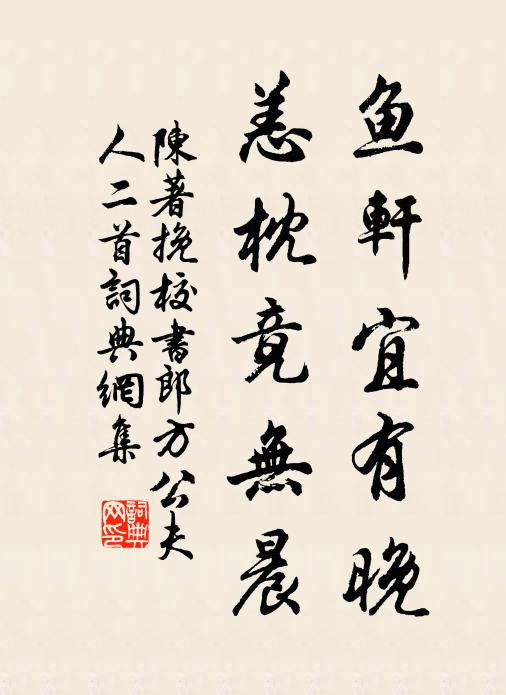 鱼軒宜有晚
恙枕竟無晨
陳著挽校書郎方公夫
人二首詞典網集
詞典网印